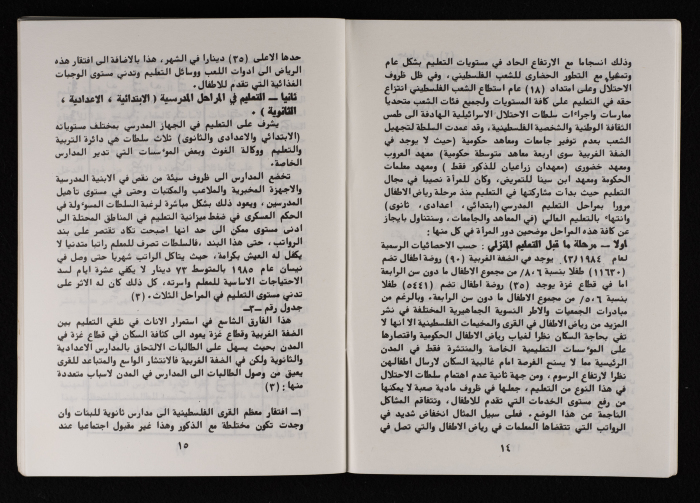 وذلك انسجاما مع الارتفاع الحاد في مستويات التعليم بشكل عام
وتمشيا مع التطور الحضاري للشعب الفلسطيني، وفي ظل ظروف
الاحتلال وعلى امتداد (١٨) عام استطاع الشعب الفلسطيني انتزاع
حقه في التعليم على كافة المستويات ولجميع فئات الشعب متحديا
ممارسات واجراءات سلطات الاحتلال الاسرائيلية الهادفة الى طمس
الثقافة الوطنية والشخصية الفلسطينية، وقد عمدت السلطة لتجهيل
الشعب بعدم توفير جامعات ومعاهد حكومية (حيث لا يوجد في
الضفة الغربية سوى اربعة معاهد متوسطة حكومية) معهد العروب
ومعهد خضوري (معهدان زراعيان للذكور فقط) ومعهد معلمات
الحكومة ومعهد ابن سينا للتمريض، وكان للمرأة نصيبا في مجال
التعليم حيث بدأت مشاركتها في التعليم منذ مرحلة رياض الاطفال
مرورا بمراحل التعليم المدرسي (ابتدائي، اعدادي، ثانوي)
وانتهاء بالتعليم العالي (في المعاهد والجامعات، وسنتناول بايجاز
عن كافة هذه المراحل موضحين دور المرأة في كل منها :
اولا — مرحلة ما قبل التعليم المنزلي : حسب الاحصائيات الرسمية
لعام ٣/١٩٨٤) يوجد في الضفة الغربية (٩٠) روضة اطفال تضم
(١١٦٣٠) طفلا بنسبة ٨٠٦٪ من مجموع الاطفال ما دون سن الرابعة
اما في قطاع غزة يوجد (٣٥) روضة اطفال تضم (٥٤٤١) طفلا
بنسبة ٥٠٦٪ من مجموع الاطفال ما دون سن الرابعة. وبالرغم من
مبادرات الجمعيات والاطر النسوية الجماهيرية المختلفة في نشر
المزيد من رياض الاطفال في القرى والمخيمات الفلسطينية الا انها لا
تفي بحاجة السكان نظرا لغياب رياض الاطفال الحكومية واقتصارها
على المؤسسات التعليمية الخاصة والمنتشرة فقط في المدن
الرئيسية مما لا يسنح الفرصة امام غالبية السكان لارسال اطفالهن
نظرا لارتفاع الرسوم، ومن جهة ثانية عدم اهتمام سلطات الاحتلال
في هذا النوع من التعليم، جعلها في ظروف مادية صعبة لا يمكنها
من رفع مستوى الخدمات التي تقدم للاطفال، وتتفاقم المشاكل
الناجمة عن هذا الوضع. فعلى سبيل المثال انخفاض شديد في
الرواتب التي تتقضاها المعلمات في رياض الاطفال والتي تصل في
١٤
حدها الاعلى (٣٥) دينارا في الشهر، هذا بالاضافة الى افتقار هذه
الرياض الى ادوات اللعب ووسائل التعليم وتدني مستوى الوجبات
الغذائية التي تقدم للاطفال.
ثانيا — التعليم في المراحل المدرسية (الابتدائية، الاعدادية،
الثانوية).
يشرف على التعليم في الجهاز المدرسي بمختلف مستوياته
(الابتدائي والاعدادي والثانوي) ثلاث سلطات هي دائرة التربية
والتعليم ووكالة الغوث وبعض المؤسسات التي تدير المدارس
الخاصة.
تخضع المدارس الى ظروف سيئة من نقص في الابنية المدرسية
والاجهزة المخبرية والملاعب والمكتبات وحتى في مستوى تأهيل
المدرسين، ويعود ذلك بشكل مباشرة لرغبة السلطات المسؤولة في
الحكم العسكري في ضغط ميزانية التعليم في المناطق المحتلة الى
ادنى مستوى ممكن الى حد انها اصبحت تكاد تقتصر على بند
الرواتب، حتى هذا البند، فالسلطات تصرف للمعلم راتبا متدنيا لا
يكفل له العيش بكرامة، حيث يتآكل الراتب شهريا حتى وصل في
نيسان عام ١٩٨٥ بالمتوسط ٧٣ دينار لا يكفي عشرة ايام لسد
الاحتياجات الاساسية للمعلم واسرته، كل ذلك كان له الاثر على
تدني مستوى التعليم في المراحل الثلاث. (٣)
جدول رقم —٣—
هذا الفارق الشاسع في استمرار الاناث في تلقي التعليم بين
الضفة الغربية وقطاع غزة يعود الى كثافة السكان في قطاع غزة في
المدن بحيث يسهل على الطالبات الالتحاق بالمدارس الاعدادية
والثانوية ولكن في الضفة الغربية فالانتشار الواسع والمتباعد للقرى
يعيق من وصول الطالبات الى المدارس في المدن لاسباب متعددة
منها : (٣)
١— افتقار معظم القرى الفلسطينية الى مدارس ثانوية للبنات وان
وجدت تكون مختلطة مع الذكور وهذا غير مقبول اجتماعيا عند
١٥